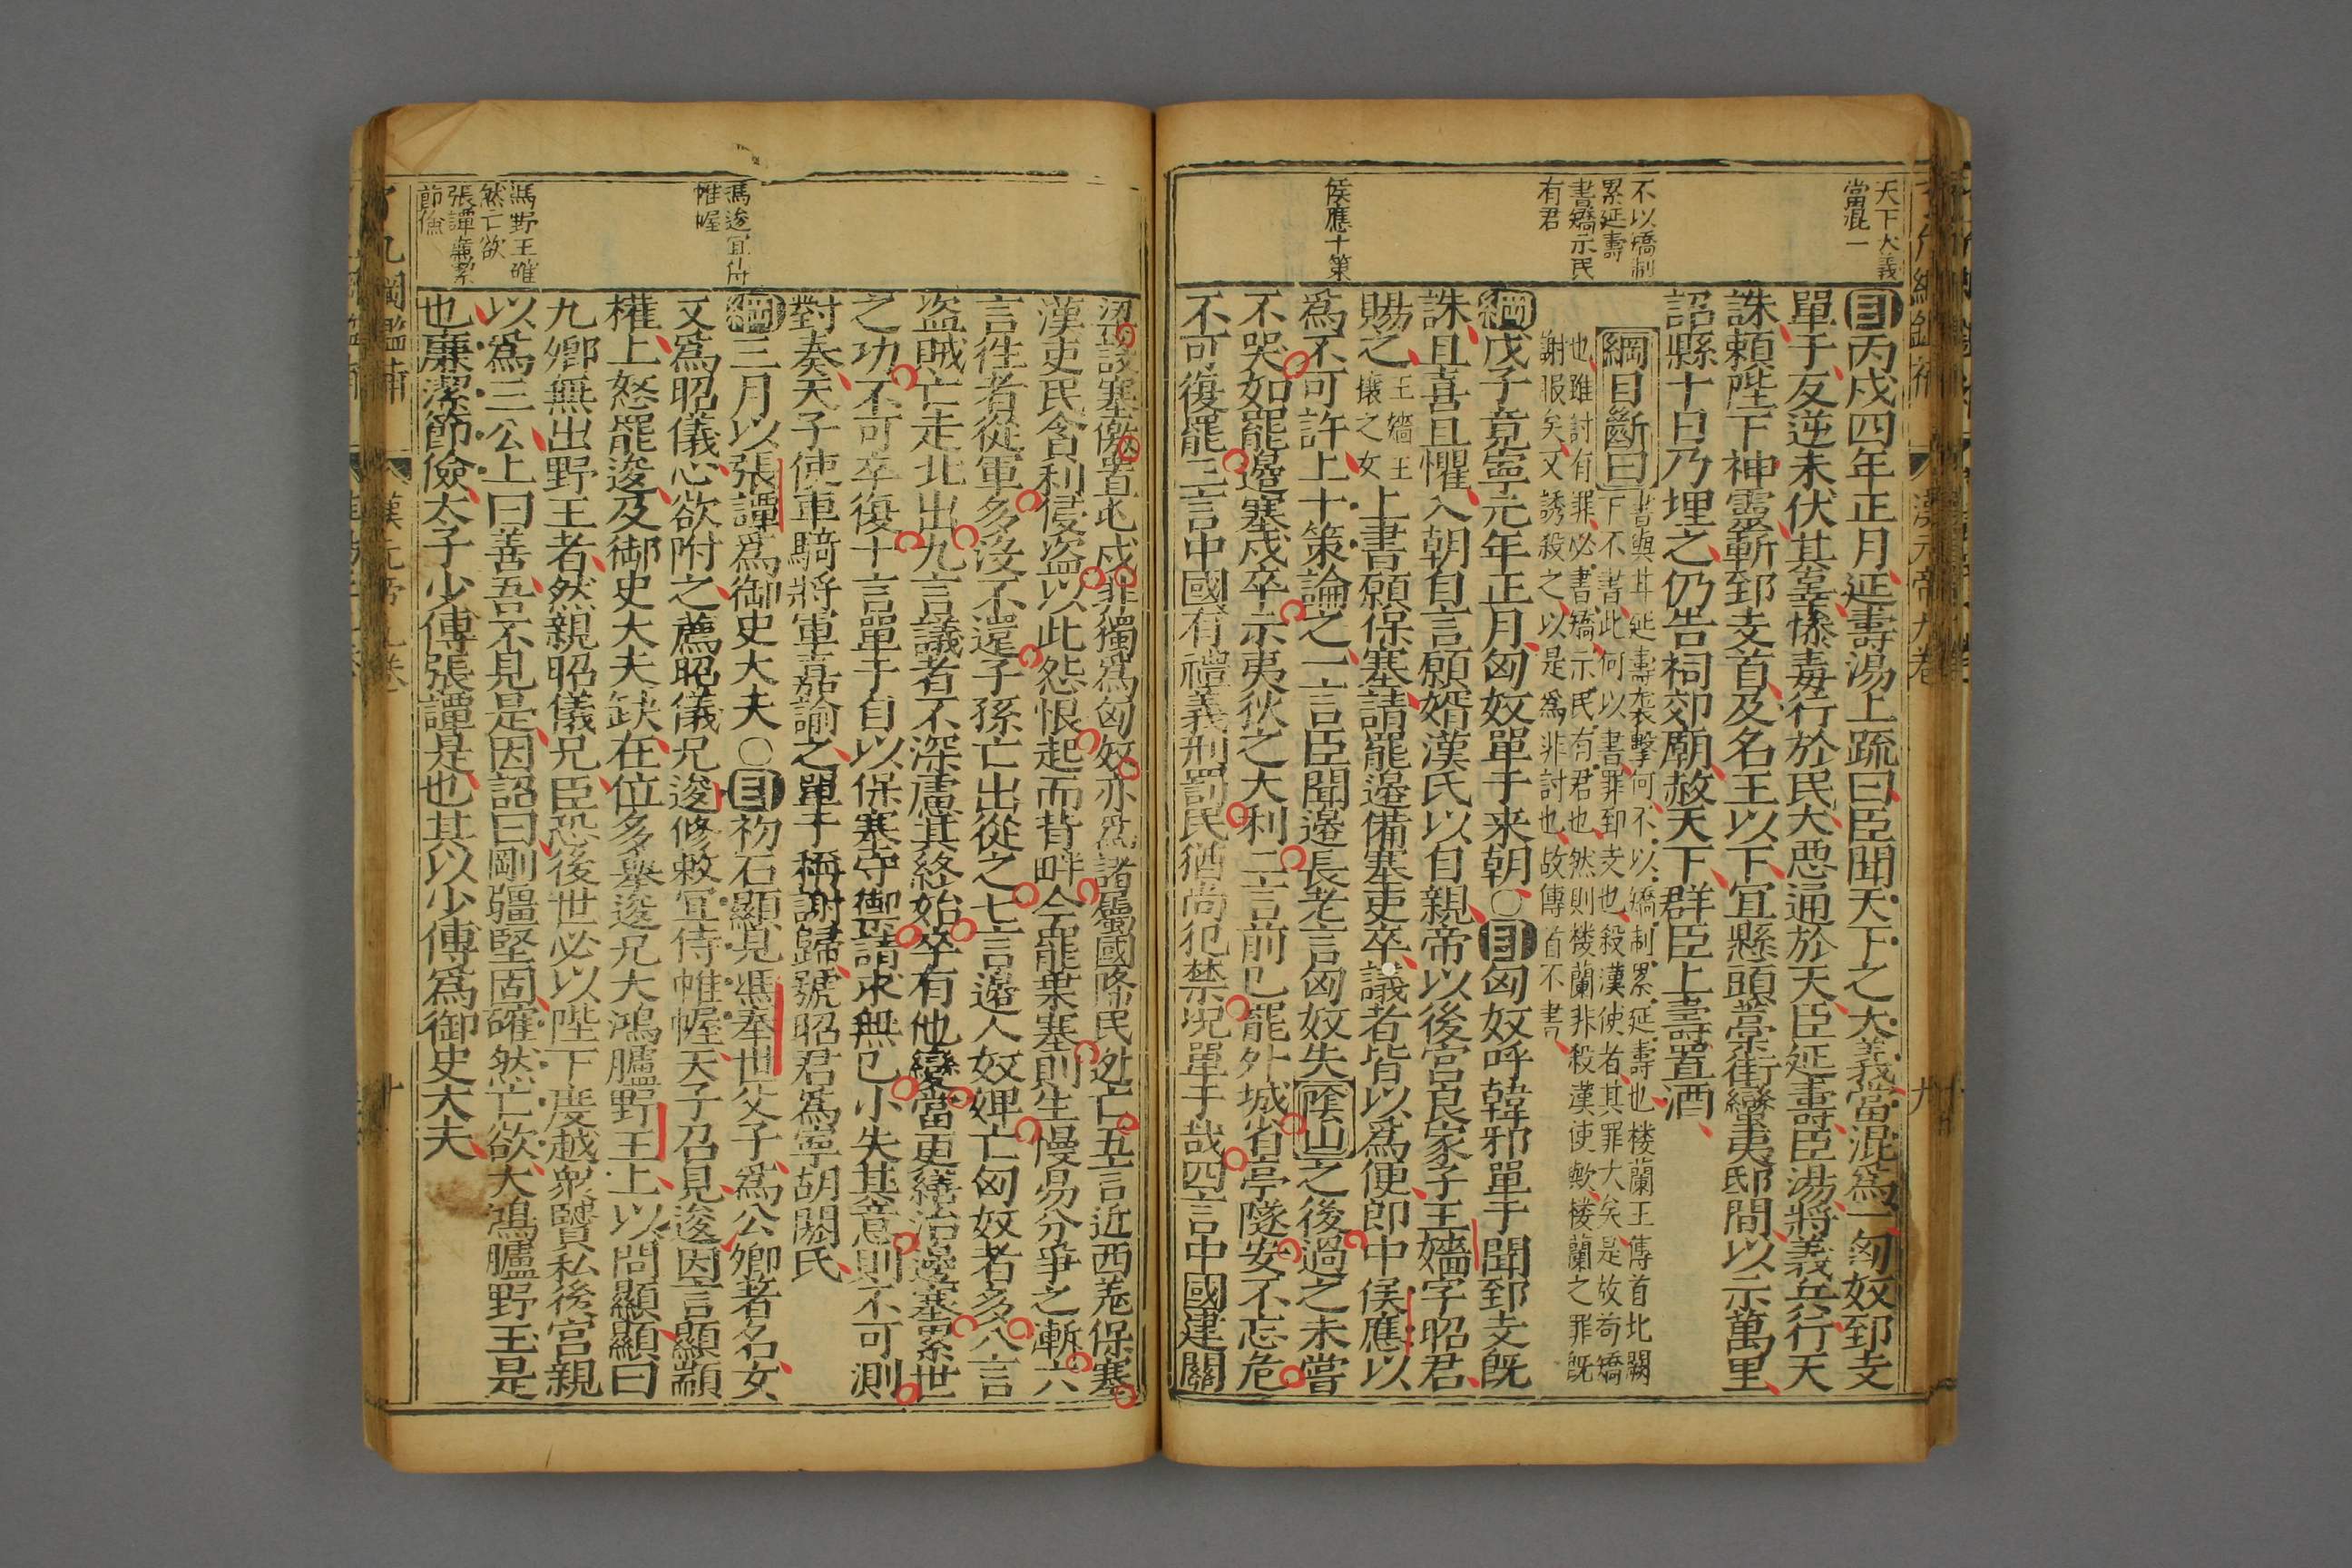 天下大義
當混一
不以矯制
累延壽
書矯示民
有君
侯應十策
目丙戍四年正月延壽湯上疏曰臣聞天下之大義當混爲一匈奴郅支
單于反逆未伏其辜慘毒行於民大惡通於天臣延壽臣湯將義兵行天
誅頼陛下神靈斬郅支首及名王以下宜縣頭藁街蠻夷邸間以示萬里
詔縣十日乃埋之仍告祠郊廟赦天下群臣上壽置酒
綱目斷曰書與甘延壽襲擊何不以矯制累延壽也楼蘭王傳首北闕
下不書此何以書罪郅支也殺漢使者其罪大矣是故苟矯
也雖討有罪必書矯示民有君也然則楼蘭非殺漢使歟楼蘭之罪既
謝服矣又誘殺之以是爲非討也故傳首不書
綱戊子竟寧元年正月匈奴單于来朝○目匈奴呼韓邪單于聞郅支既
誅且喜且懼入朝自言願婿漢氏以自親帝以後宮良家子王嬙字昭君
賜之王嬙王
穰之女上書願保塞請罷邊備塞吏卒議者皆以為便郎中侯應以
爲不可許上十策論之一言臣聞邊長老言匈奴失陰山之後過之未嘗
不哭如罷邊塞戍卒示夷狄之大利二言前已罷外城省亭隧安不忘危
不可復罷三言中國有禮義刑罰民猶尚犯禁况單于哉四言中國建關
馮逡宜侍
帷幄
馮野王確
然亡欲
張譚廉潔
節儉
梁設塞徼置屯戍非獨爲匈奴亦爲諸屬國降民逃亡五言近西羗保塞
漢吏民貪利侵盗以此怨恨起而背畔今罷棄塞則生慢易分爭之漸六
言徃者從軍多没不還子孫亡出從之七言邊人奴婢亡匈奴者多八言
盗賊亡走北出九言議者不深慮其終始卒有他變當更繕治邊塞累世
之功不可卒復十言單于自以保塞守御請求無已小失其意則不可測
對奏天子使車騎將軍喜諭之單于稱謝歸號昭君爲寧胡閼氏
綱三月以張譚爲御史大夫○目初石顯見馮奉世父子爲公卿著名女
又爲昭儀心欲附之薦昭儀兄逡修敕宜侍帷幄天子召見逡因言顯顓
權上怒罷逡及御史大夫缺在位多舉逡兄大鴻臚野王上以問顯顯曰
九卿無出野王者然親昭儀兄臣恐後世必以陛下度越衆賢私後宮親
以爲三公上曰善吾不見是因詔曰剛彊堅固確然亡欲大鴻臚野王是
也廉潔節儉太子少傅張譚是也其以少傅爲御史大夫